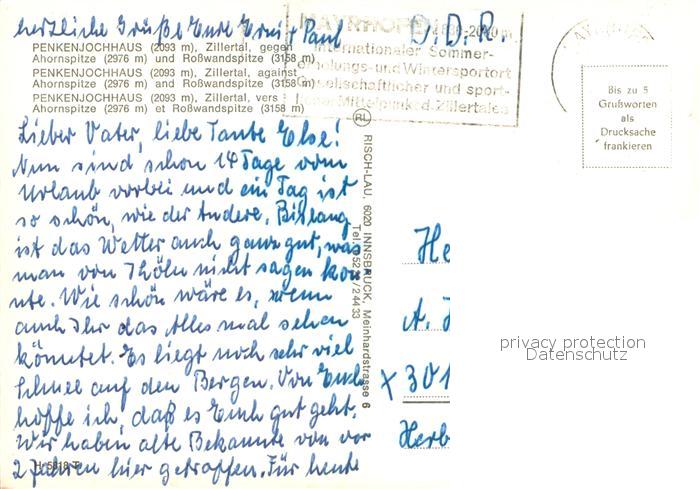 herzliche Grüße Eure Erni + Paul
D.D.R.
MAYRHOFEN 630-2000 m
Internationaler Sommer-
erholungs- und Wintersportort
Gesellschaftlicher und sport-
licher Mittelpunkt d. Zillertales
PENKENJOCHHAUS (2093 m), Zillertal, gegen
Ahornspitze (2976 m) und Roßwandspitze (3158 m)
PENKENJOCHHAUS (2093 m), Zillertal, against
Ahornspitze (2976 m) and Roßwandspitze (3158 m)
PENKENJOCHHAUS (2093 m), Zillertal, vers
Ahornspitze (2976 m) et Roßwandspitze (3158 m)
Bis zu 5
Grußworten
als
Drucksache
frankieren
Lieber Vater, liebe Tante Else!
Nun sind schon 14 Tage vom
Urlaub vorbei und ein Tag ist
so schön, wie der Andere. Bislang
ist das Wetter auch ganz gut, was
man von Thöln nicht sagen kon
nte. Wie schön wäre es, wenn
auch Ihr das Alles mal sehen
könntet. Es liegt noch sehr viel
Schnee auf den Bergen. Von Euch
hoffe ich, daß es Euch gut geht.
Wir haben alte Bekannte von vor
2 Jahren hier getroffen. Für heute
RL
RISCH-LAU, 6020 INNSBRUCK, Meinhardstrasse 6
Tel. 05222/24433
He
A. J
X 301
Herb
privacy protection
Datenschutz